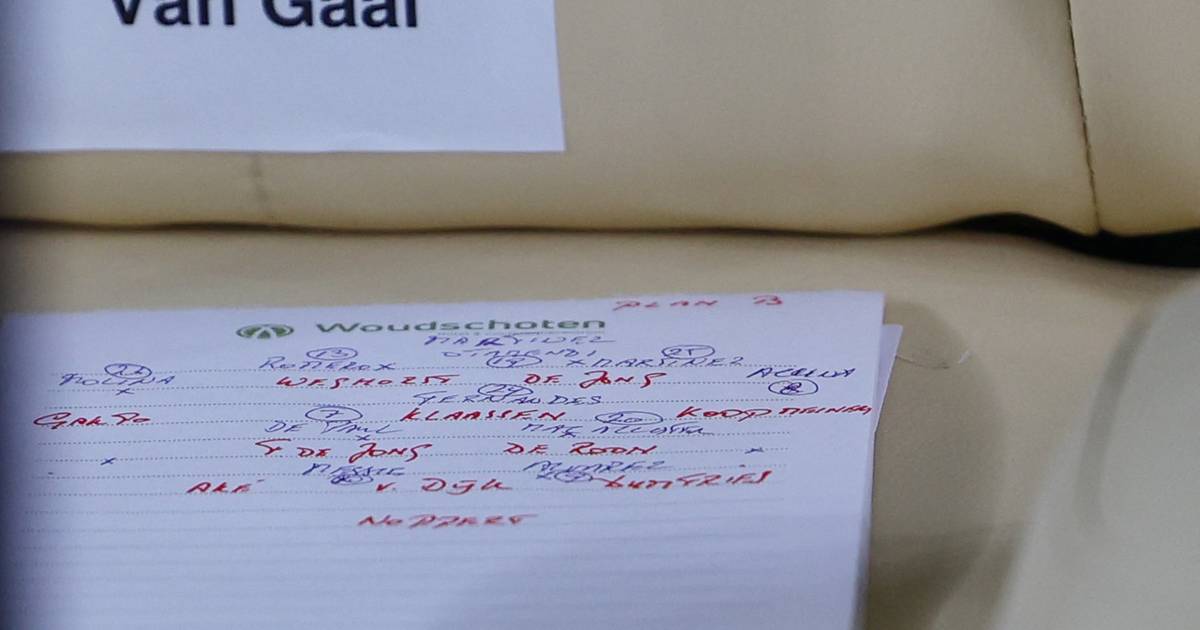 Van Gaal
PLAN B
Woudschoten
MARTINEZ
ROMERO X 13 OTAMENDI 19 X MARTINEZ 25
MOLINA 26 ACUNA 8
WEGHORST DE JONG
FERNANDES 24
GAKPO KLAASSEN KOOPMEINERS
DE PAUL 7 MAC ALLISTER 20
F DE JONG DE ROON
MESSIE ALVAREZ
AKÉ V. DIJK DUMFRIES
NOPPERT